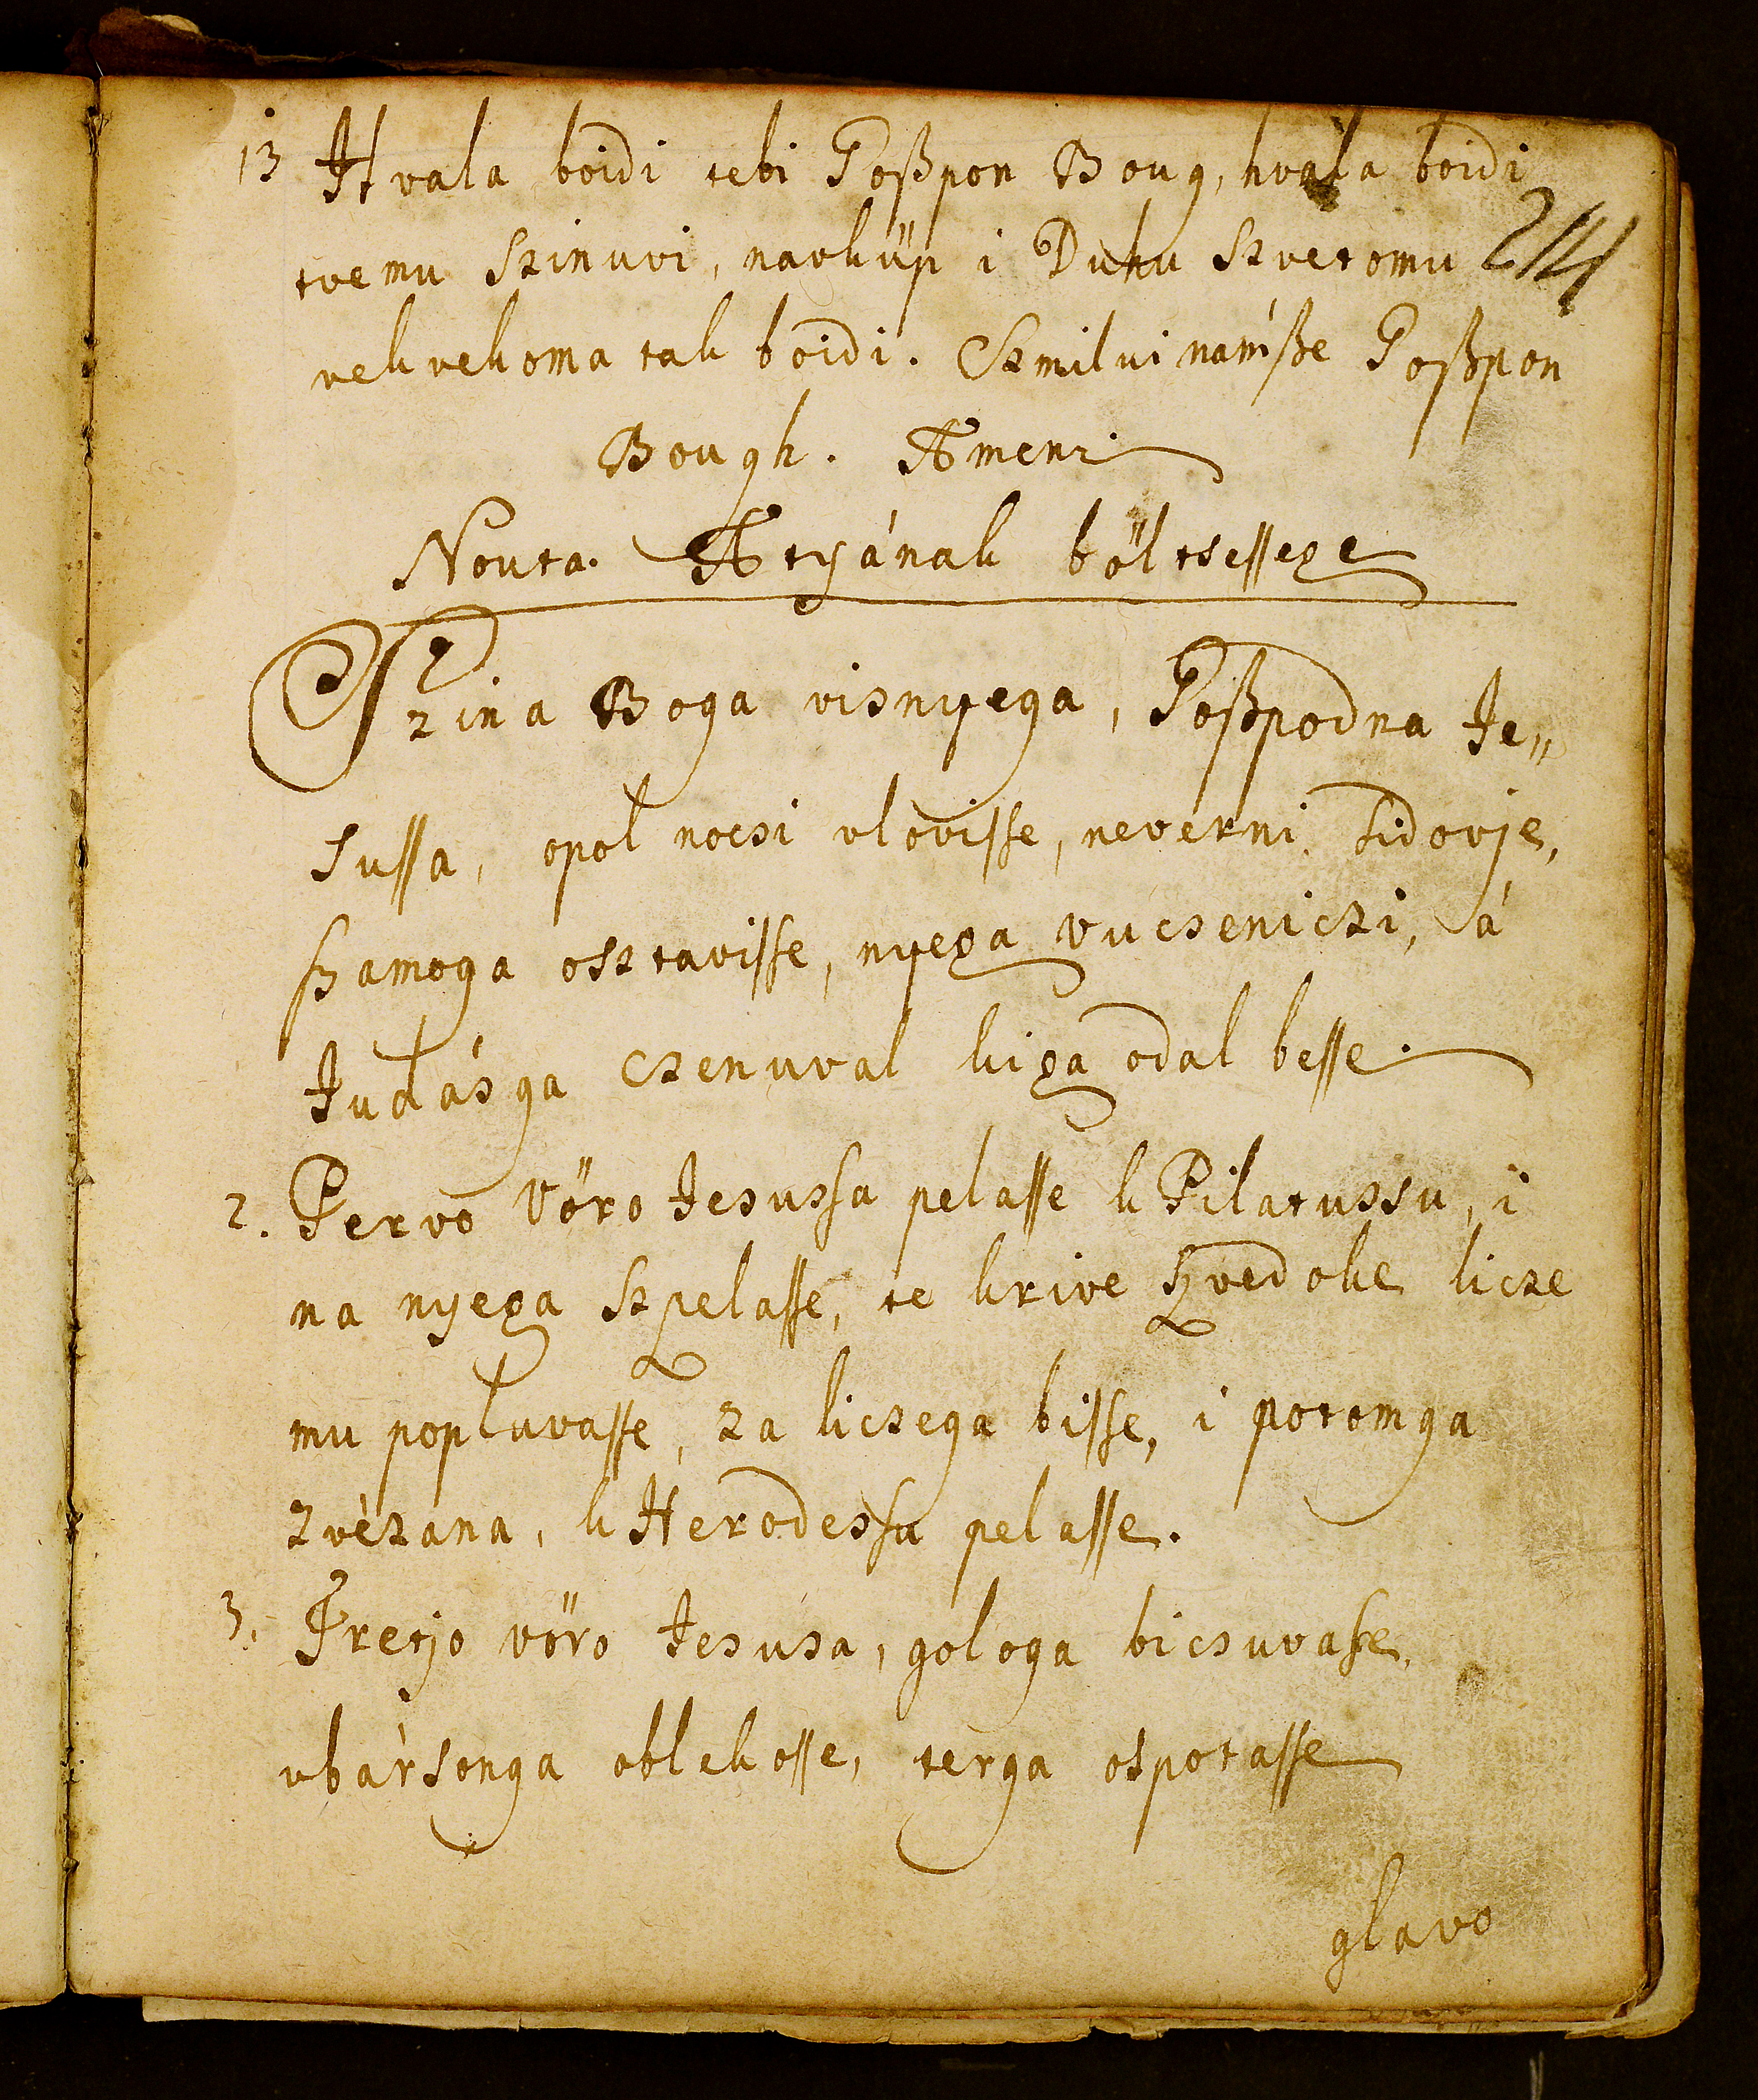 13 Hvala boidi tebi Goßpon Boug, hvala boidi
214
tvemu Szinuvi, navküp i Duhu Szvetomu
vekvekoma tak boidi. Szmilui námsze Goßpon
Bough. Amen.
Nouta. Atyának böltsessege
Szina Boga visnyega, Goßpodna Je„
sussa, opol nocsi vlovisse, neverni Sidovje,
szamoga osztavisse, nyega vucseniczi, á
Judásga csenuval kiga odal besse.
2. Pervo Vöro Jesussa pelasse k Pilatussu, i
na nyega szpelasse, te krive szvedoke licze
mu popluvasse, za liczega bisse, i potomga
zvézana, k Herodessu pelasse.
3. Tretjo vöro Jesusa, gologa bicsuvasse,
vbársonga oblekosse, terga ospotasse
glavo